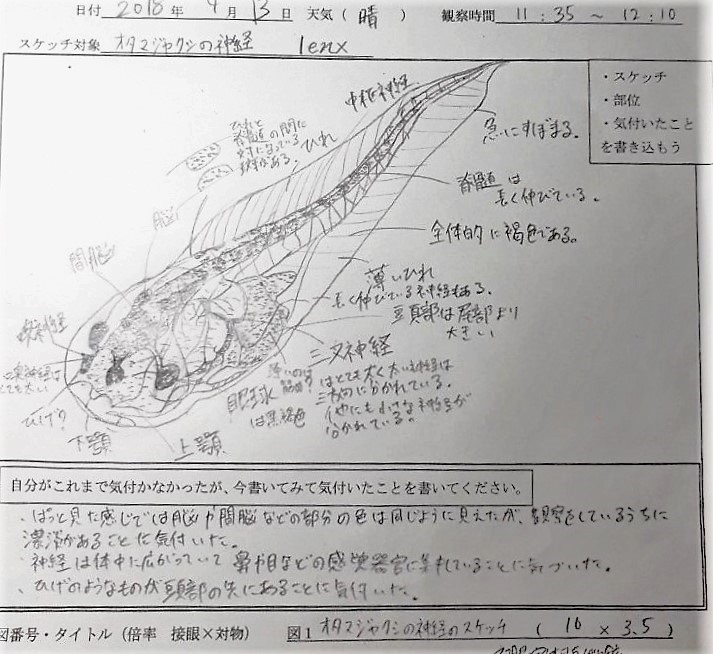 日付 2018 年 4 月 13 日 天気（ 晴 ） 観察時間 11:35 ～ 12:10
スケッチ対象 オタマジャクシの神経
・スケッチ
・部位
・気付いたこと
を書き込もう
中枢神経
ひれと
脊髄の間に
ひれ
急にすぼまる。
脊髄は
長く伸びている。
脳
全体的に褐色である。
間脳
薄いひれ
長く伸びている神経もある。
頭部は尾部より
大きい
三叉神経
はとても太く太い神経は
三方向に分かれている。
他にも小さな神経が
分かれている。
眼球
は黒褐色
ひげ？
下顎
上顎
自分がこれまで気付かなかったが、今書いてみて気付いたことを書いてください。
・ぱっと見た感じでは脳や間脳などの部分の色は同じように見えたが、観察をしているうちに
濃淡があることに気付いた。
・神経は体中に広がっていて鼻や目などの感覚器官に集中していることに気づいた。
・ひげのようなものが頭部の先にあることに気付いた。
図番号・タイトル（倍率 接眼×対物） 図1 オタマジャクシの神経のスケッチ （ 10 × 3.5 ）